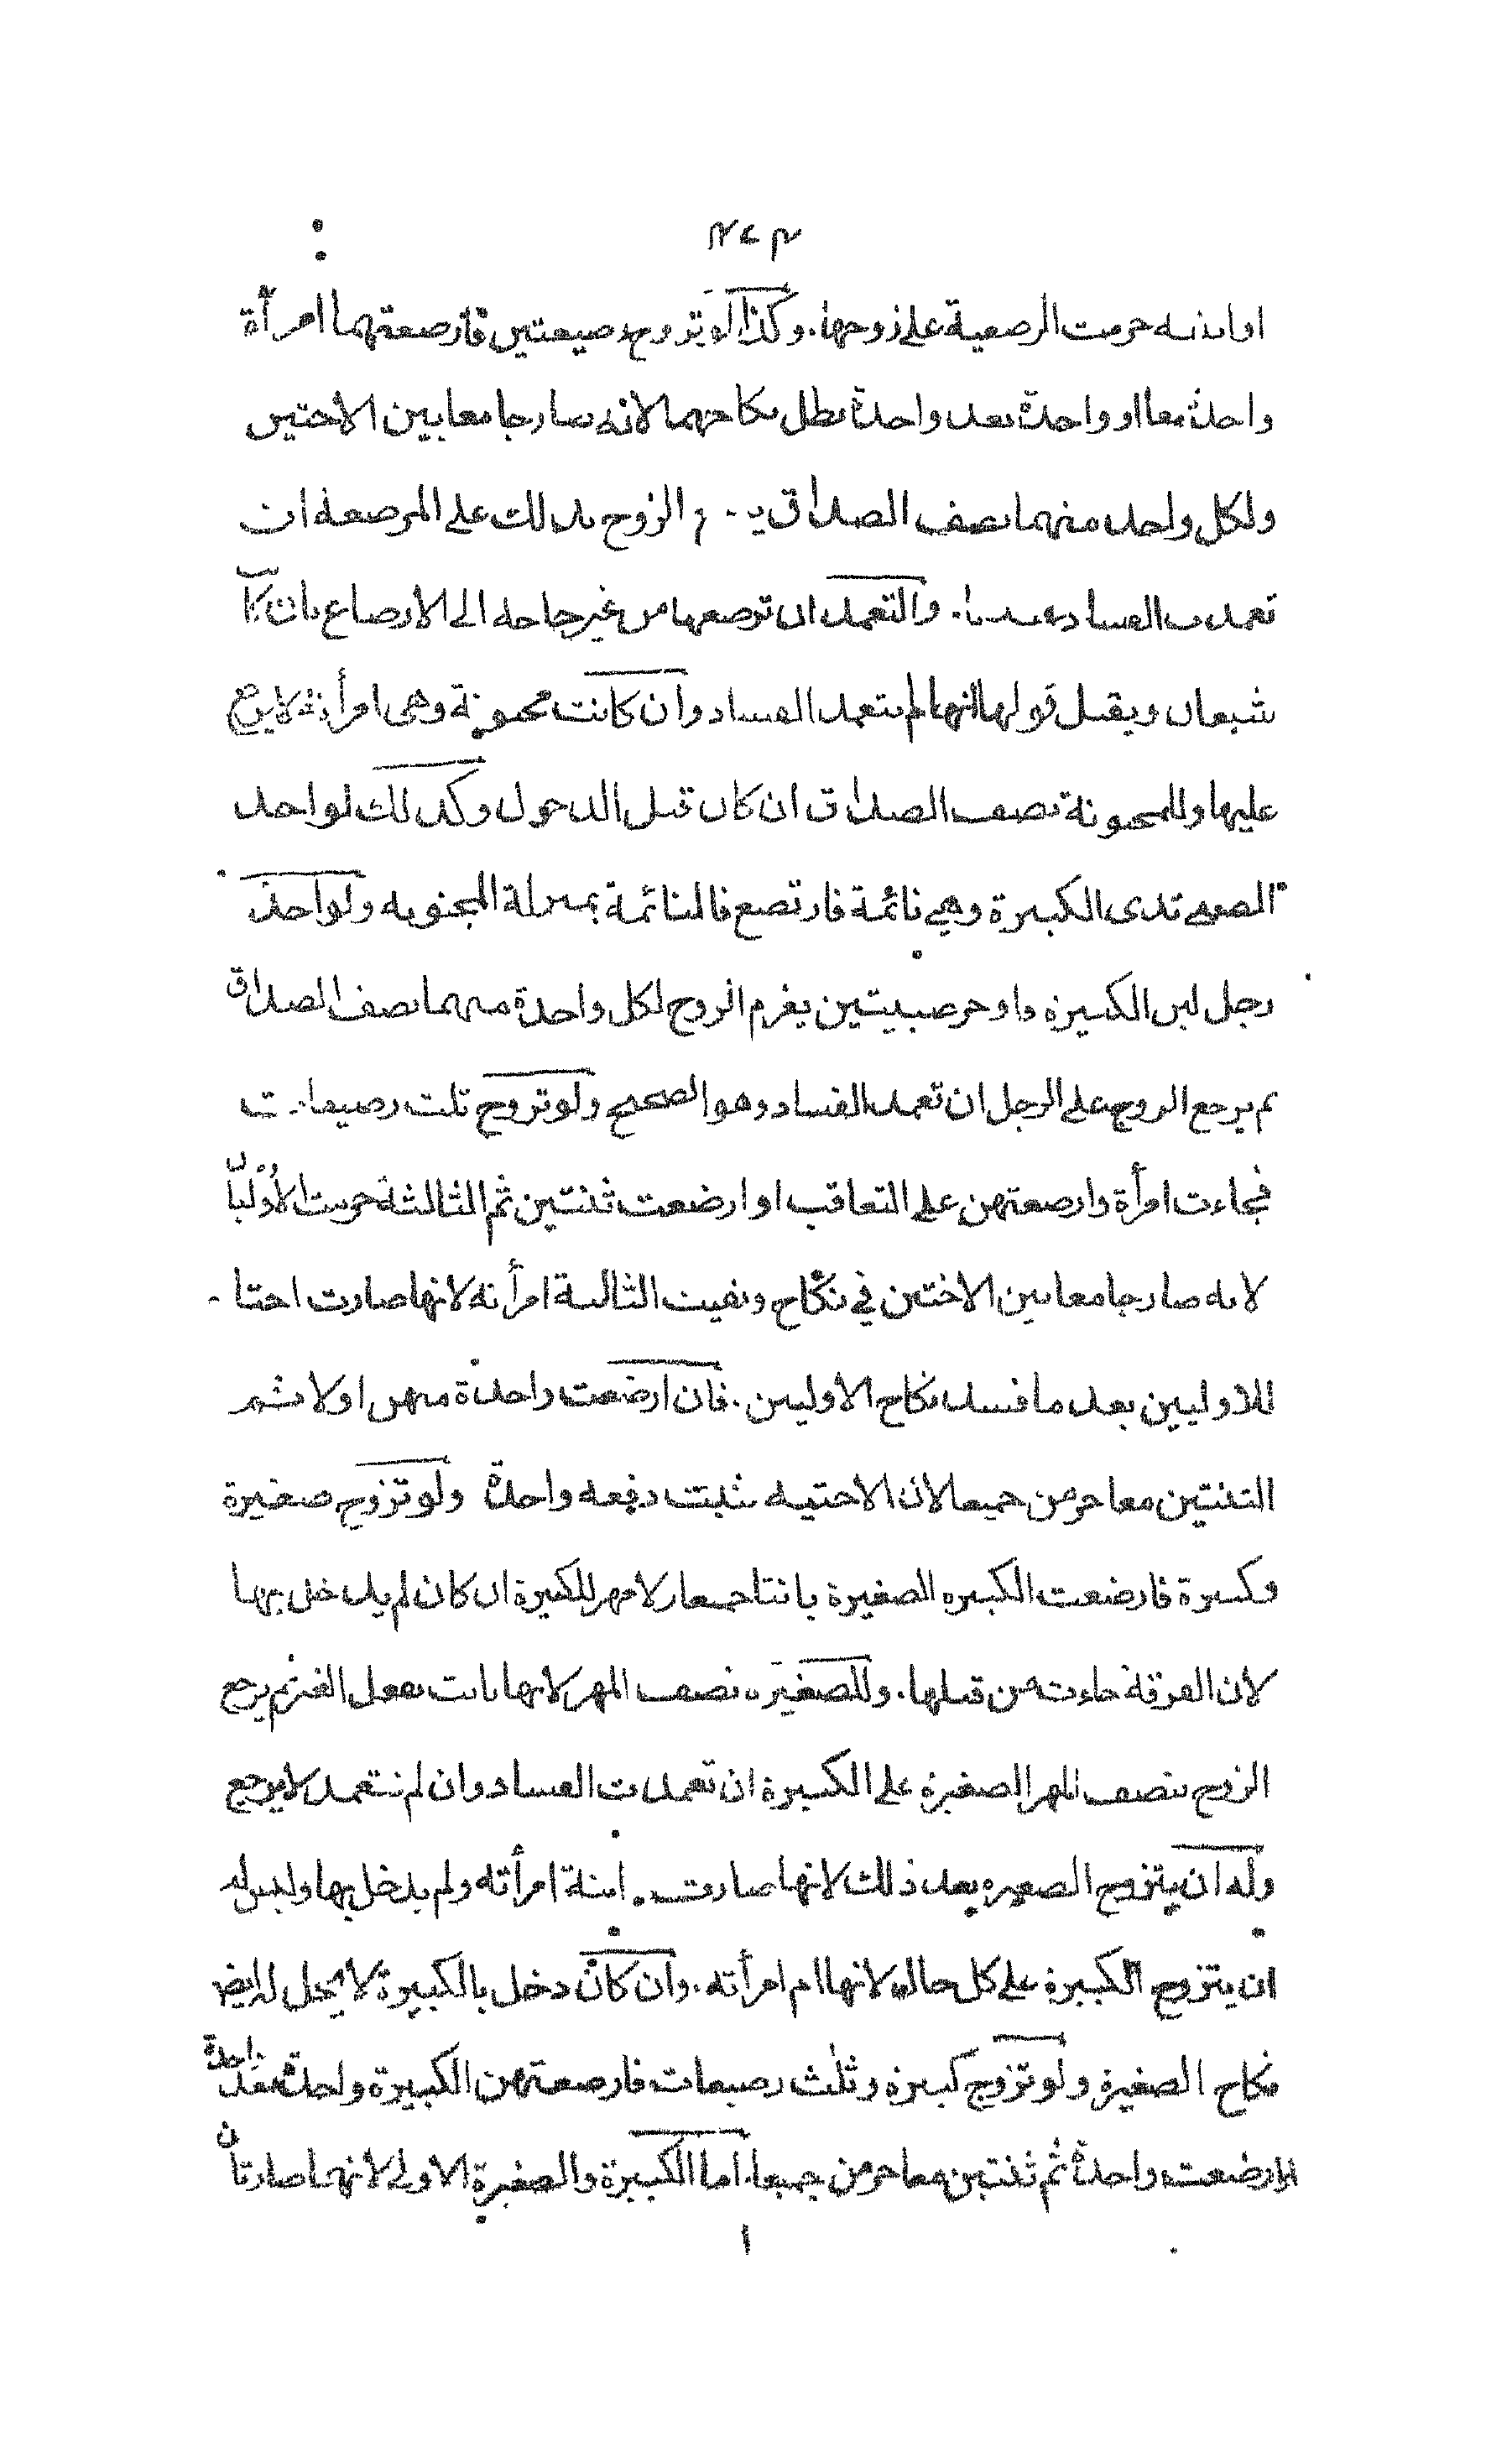 او ابنته حرمت الرضعية على زوجها. وكذا لو تزوج رضيعتين فارضعتهما امرأة
واحدة معا او واحدة بعد واحدة بطل نكاحهما لانه صار جامعا بين الاختين
ولكل واحدة منهما نصف الصداق ير م الزوج بذلك على المرضعة ان
تعمدت الفساد. والتعمد ان ترضعها من غير حاجة الى الارضاع بان كا
شبعان ويقبل قولها انها لم تتعمد الفساد وان كانت مجنونة وهى امرأته لا يرجع
عليها وللمجنونة نصف الصداق ان كان قبل الدخول وكذلك لو اخذ
الصبى ثدى الكبيرة وهي نائمة فارتضع فالنائمة بمنزلة المجنونه ولو اخذ
رجل لبن الكبيرة فاوجر صبيتين يغرم الزوج لكل واحدة منهما نصف الصداق
ثم يرجع الزوج على الرجل ان تعمد الفساد وهو الصحيح ولو تزوج ثلث رضيعات
فجاءت امرأة وارضعتهن على التعاقب او ارضعت ثنتين ثم الثالثة حرمت الاوليان
لانه صار جامعا بين الاختين في نكاح وبقيت الثالثة امرأته لانها صارت اختا
للاوليين بعد ما فسد نكاح الاوليين. فان ارضعت واحدة منهن اولا ثم
الثنتين معا حرمن جميعا لان الاختيه ثبتت دفعه واحدة ولو تزوج صغيرة
وكبيرة فارضعت الكبيره الصغيرة بانتا جميعا ولا مهر للكبيرة ان كان لم يدخل بها
لان الفرقة جاءت من قبلها. وللصغيره نصف المهر لانها بانت بفعل الغير ثم يرجع
الزوج بنصف المهر الصغيرة على الكبيرة ان تعمدت الفساد وان لم تتعمد لا يرجع
وله ان يتزوج الصغيره بعد ذلك لانها صارت ابنة امرأته ولم يدخل بها وليس له
ان يتزوج الكبيرة على كل حال لانها ام امرأته. وان كان دخل بالكبيرة لا يحل له ايضا
نكاح الصغيرة ولو تزوج كبيرة وثلث رضيعات فارضعتهن الكبيرة واحدة بعد واحدة
او ارضعت واحدة ثم ثنتين معا حرمن جميعا. اما الكبيرة والصغيرة الاولى لانهما صارتا